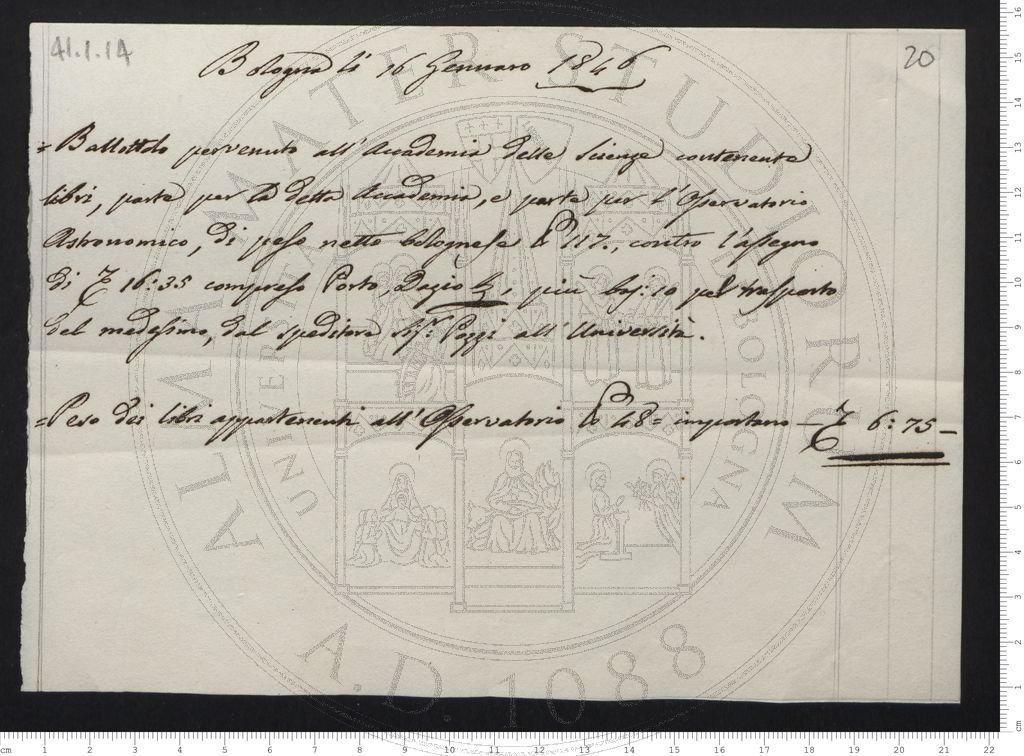 41.1.14
20
Bologna li 16 Gennaro 1846
= Ballottolo pervenuto all' Accademia delle Scienze contenente
libri, parte per la detta Accademia, e parte per l'Osservatorio
Astronomico, di peso netto bolognese ℔ 117., contro l'assegno
di 16:35 compreso Porto, Dazio & più baj: 10 pel trasporto
del medesimo, dal speditore Sig.r Pozzi all' Università.
= Peso dei libri appartenenti all' Osservatorio ℔ 48 = importano — 6:75 —
ALMA MATER STUDIORUM
A.D. 1088